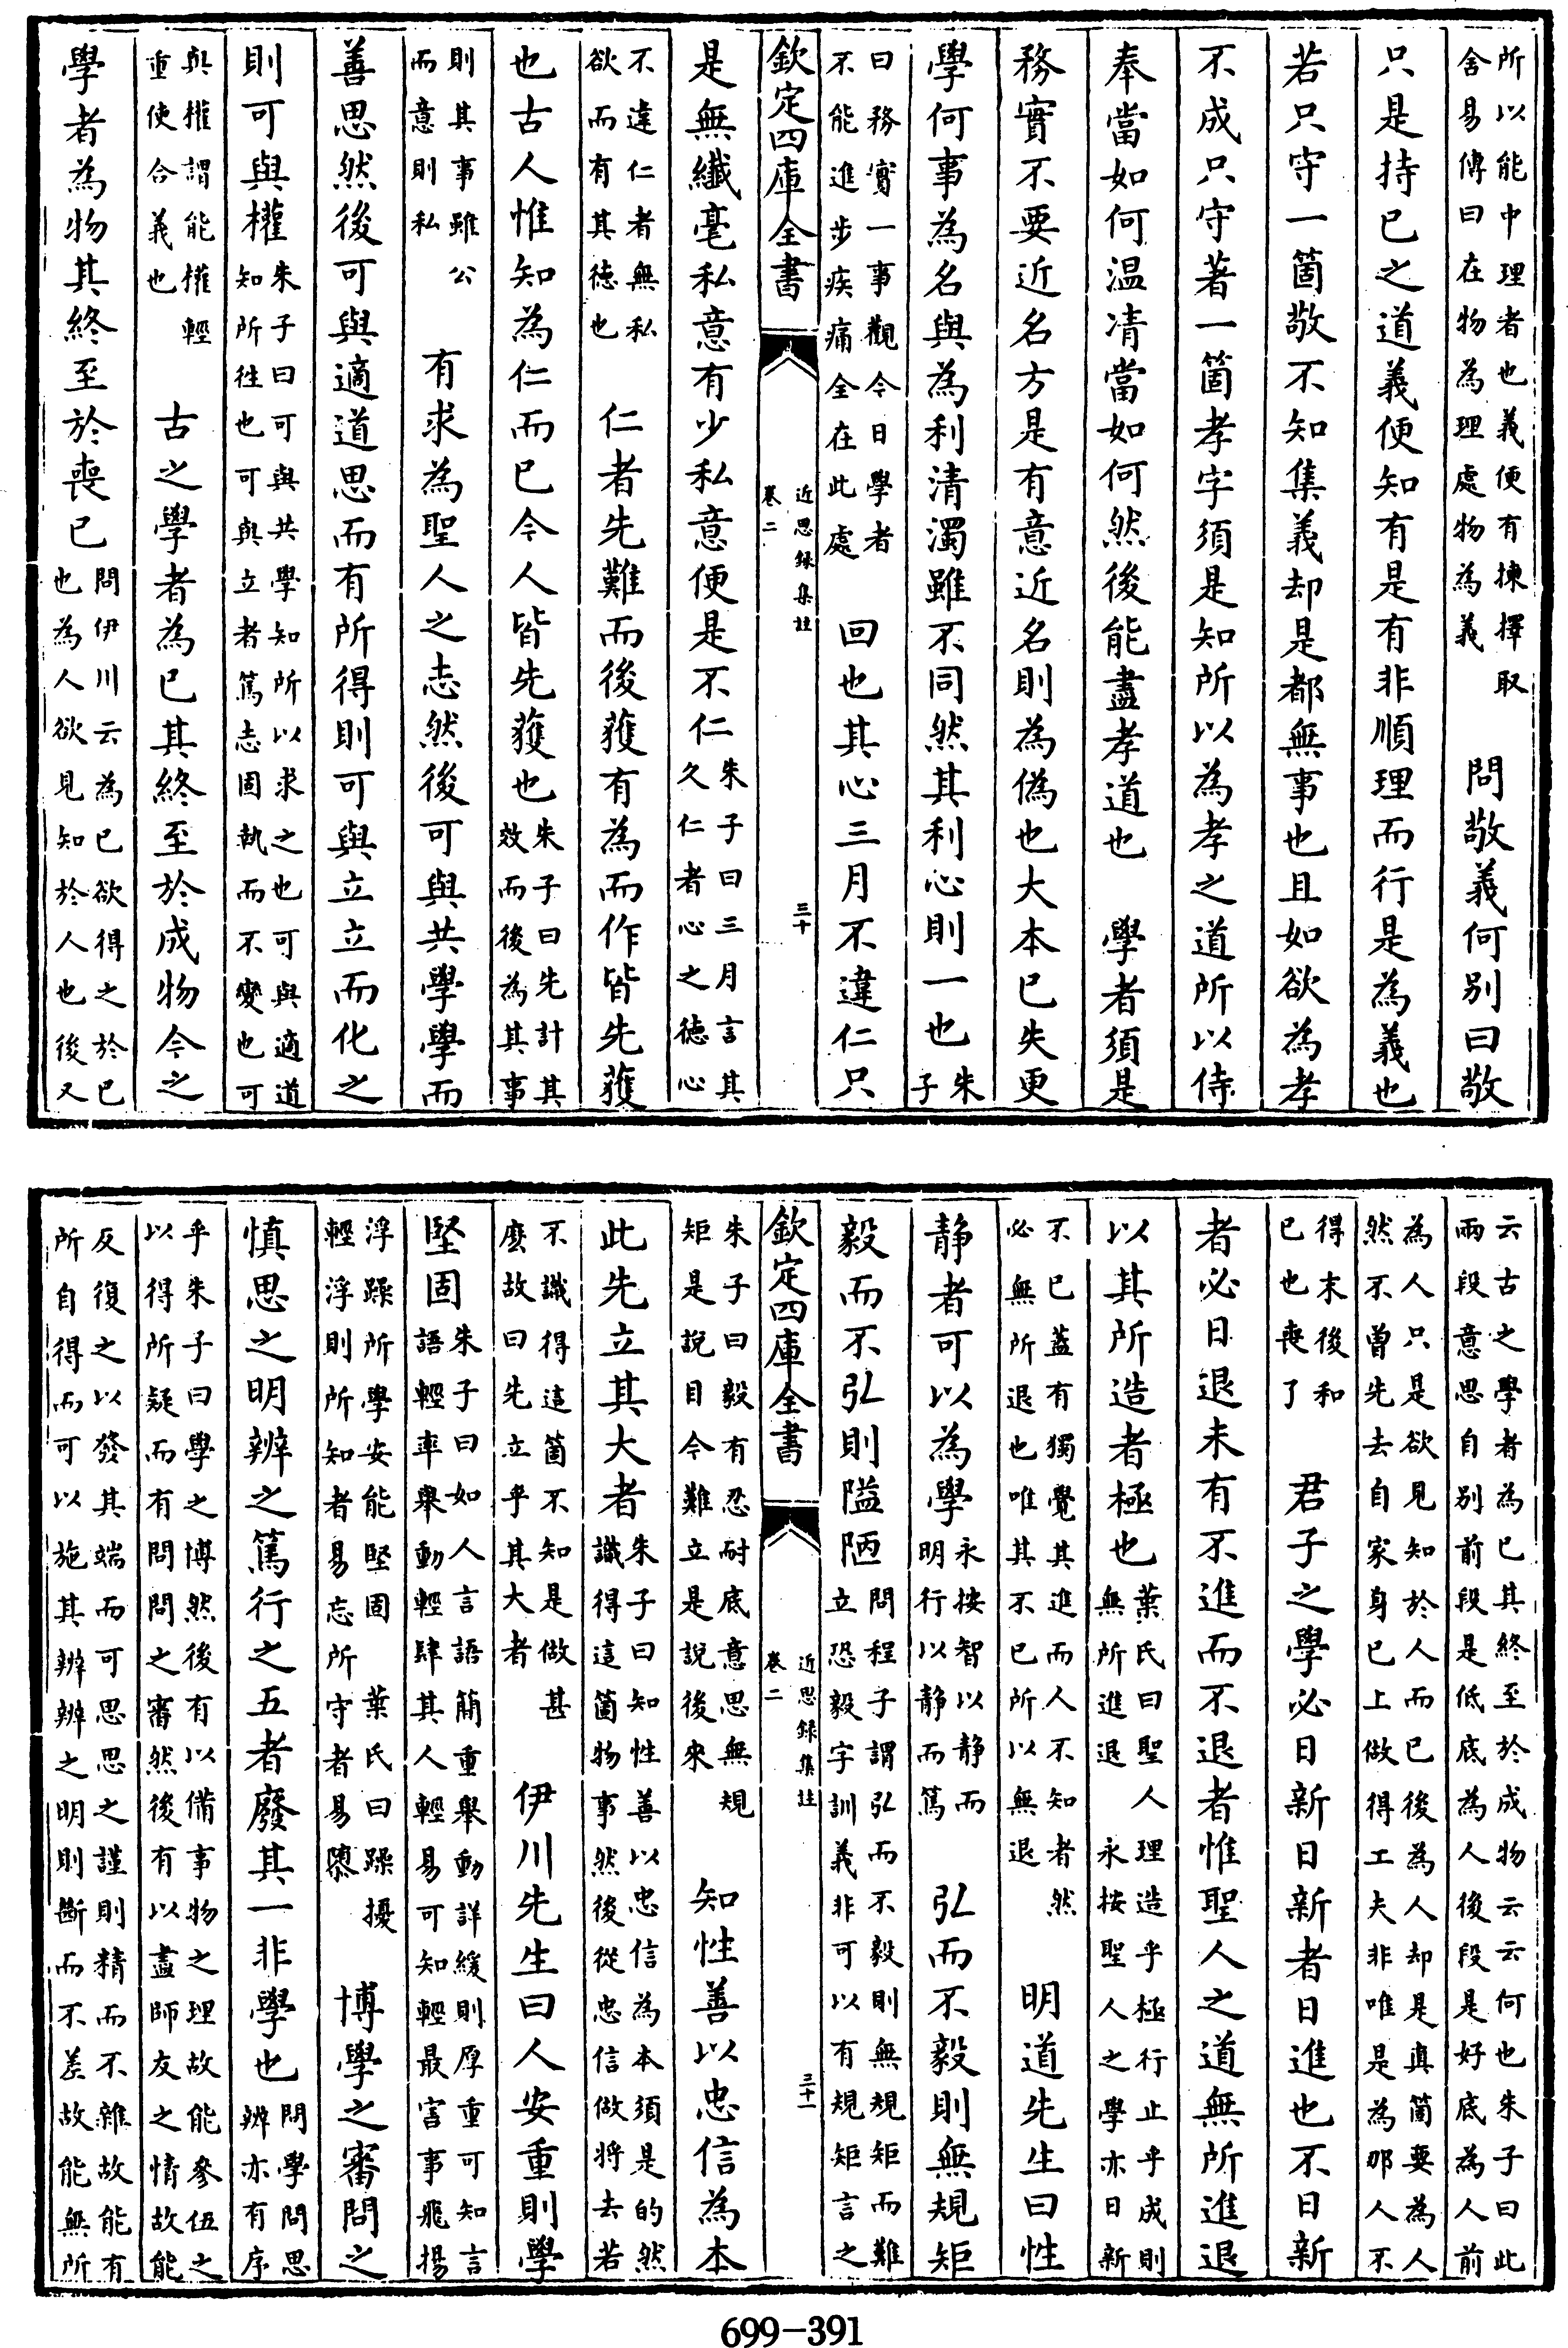 所以能中理者也義便有揀擇取
舍易傳曰在物為理處物為義
問敬義何別曰敬
只是持已之道義便知有是有非順理而行是為義也
若只守一箇敬不知集義却是都無事也且如欲為孝
不成只守著一箇孝字須是知所以為孝之道所以侍
奉當如何温凊當如何然後能盡孝道也　學者須是
務實不要近名方是有意近名則為偽也大本已失更
學何事為名與為利清濁雖不同然其利心則一也
朱
子
曰務實一事觀今日學者
不能進步疾痛全在此處
回也其心三月不違仁只
欽定四庫全書
近思録集註
卷二
三十
是無纖毫私意有少私意便是不仁
朱子曰三月言其
久仁者心之徳心
不違仁者無私
欲而有其徳也
仁者先難而後獲有為而作皆先獲
也古人惟知為仁而已今人皆先獲也
朱子曰先計其
效而後為其事
則其事雖公
而意則私
有求為聖人之志然後可與共學學而
善思然後可與適道思而有所得則可與立立而化之
則可與權
朱子曰可與共學知所以求之也可與適道
知所往也可與立者篤志固執而不變也可
與權謂能權輕
重使合義也
古之學者為已其終至於成物今之
學者為物其終至於喪已
問伊川云為已欲得之於已
也為人欲見知於人也後又
云古之學者為已其終至於成物云云何也朱子曰此
兩段意思自別前段是低底為人後段是好底為人前
為人只是欲見知於人而已後為人却是真箇要為人
然不曾先去自家身已上做得工夫非唯是為那人不
得末後和
已也喪了
君子之學必日新日新者日進也不日新
者必日退未有不進而不退者惟聖人之道無所進退
以其所造者極也
葉氏曰聖人理造乎極行止乎成則
無所進退　永按聖人之學亦日新
不已蓋有獨覺其進而人不知者然
必無所退也唯其不已所以無退
明道先生曰性
静者可以為學
永按智以静而
明行以静而篤
弘而不毅則無規矩
毅而不弘則隘陋
問程子謂弘而不毅則無規矩而難
立恐毅字訓義非可以有規矩言之
欽定四庫全書
近思録集註
卷二
三十一
朱子曰毅有忍耐底意思無規
矩是說目今難立是說後來
知性善以忠信為本
此先立其大者
朱子曰知性善以忠信為本須是的然
識得這箇物事然後從忠信做將去若
不識得這箇不知是做甚
麽故曰先立乎其大者
伊川先生曰人安重則學
堅固
朱子曰如人言語簡重舉動詳緩則厚重可知言
語輕率舉動輕肆其人輕易可知輕最害事飛揚
浮躁所學安能堅固　葉氏曰躁擾
輕浮則所知者易忘所守者易隳
博學之審問之
慎思之明辨之篤行之五者廢其一非學也
問學問思
辨亦有序
乎朱子曰學之博然後有以備事物之理故能參伍之
以得所疑而有問問之審然後有以盡師友之情故能
反復之以發其端而可思思之謹則精而不雜故能有
所自得而可以施其辨辨之明則斷而不差故能無所
699-391